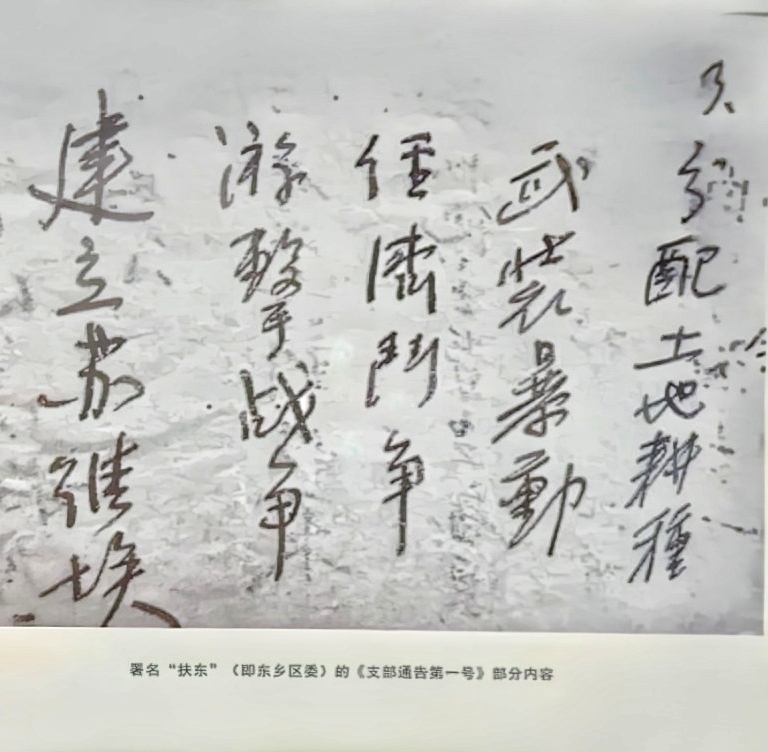 分配土地耕種
武装暴動
经濟鬥争
游擊战争
建立苏维埃
署名“扶东”（即东乡区委）的《支部通告第一号》部分内容